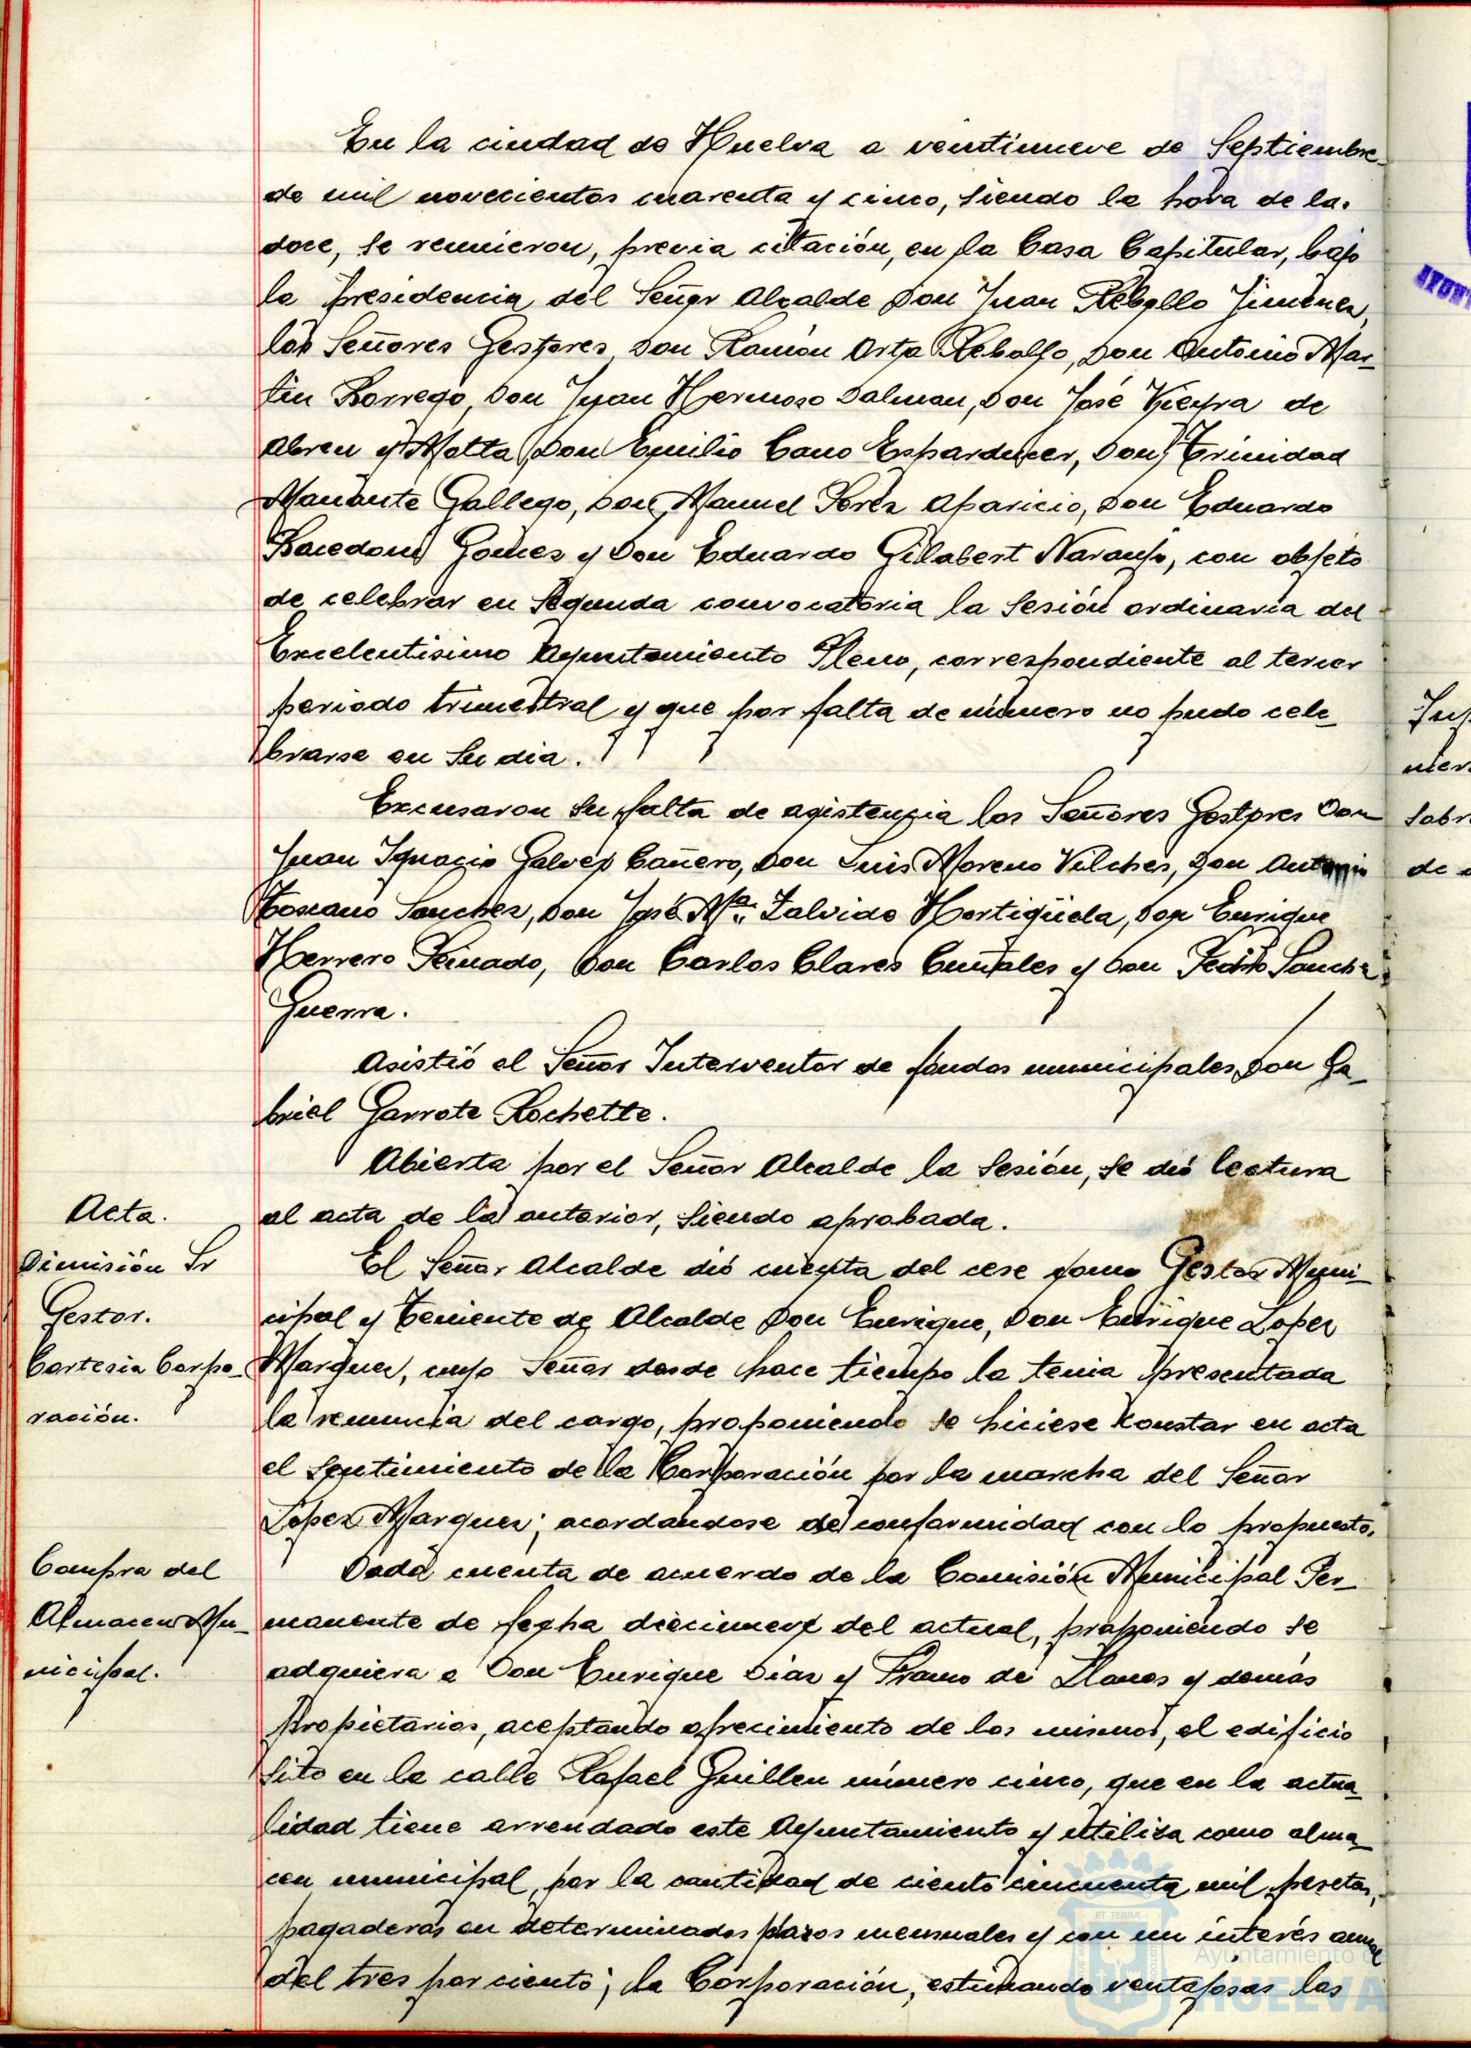 En la ciudad de Huelva a veintinueve de Septiembre
de mil novecientos cuarenta y cinco, siendo la hora de las
doce, se reunieron, previa citación, en la Casa Capitular, bajo
la presidencia del Señor Alcalde Don Juan Rebollo Jimenez,
los Señores Gestores Don Ramón Orta Rebollo, Don Antonio Mar-
tin Borrego, Don Juan Hermoso Dalman, Don José Vieyra de
Abreu y Motta, Don Emilio Cano Esparducer, Don Trinidad
Manante Gallego, Don Manuel Perez Aparicio, Don Eduardo
Racedoni Gomez y Don Eduardo Gilabert Naranjo, con objeto
de celebrar en segunda convocatoria la sesión ordinaria del
Excelentisimo Ayuntamiento Pleno, correspondiente al tercer
periodo trimestral y que por falta de número no pudo cele-
brarse en su dia.
Excusaron su falta de asistencia los Señores Gestores Don
Juan Ignacio Galvez Cañero, Don Luis Moreno Vilches, Don Antonio
Toscano Sanchez, Don José Mª Zalvide Hortigüela, Don Enrique
Herrero Peinado, Don Carlos Clares y Don Pedro Sanchez
Guerra.
Asistió el Señor Interventor de fondos municipales Don Ga-
briel Garrote Rochette.
Abierta por el Señor Alcalde la sesión, se dió lectura
Acta.
al acta de la anterior, siendo aprobada.
Dimisión Sr
Gestor.
Cortesia Corpo-
ración.
El Señor Alcalde dió cuenta del cese como Gestor Muni-
cipal y Teniente de Alcalde Don Enrique, Don Enrique Lopez
Marquez, cuyo Señor desde hace tiempo la tenia presentada
la renuncia del cargo, proponiendo se hiciese constar en acta
el sentimiento de la Corporación por la marcha del Señor
Lopez Marquez; acordandose de conformidad con lo propuesto.
Compra del
Almacen Mu-
nicipal.
Dada cuenta de acuerdo de la Comisión Municipal Per-
manente de fecha diecinueve del actual, proponiendo se
adquiera a Don Enrique Diaz y Franco de Llanos y demás
propietarios, aceptando ofrecimiento de los mismos, el edificio
sito en la calle Rafael Guillen número cinco, que en la actua-
lidad tiene arrendado este Ayuntamiento y utiliza como alma-
cen municipal, por la cantidad de ciento cincuenta mil pesetas,
pagaderas en determinados plazos mensuales y con un interés anual
del tres por ciento; la Corporación, estimando ventajosas las
ET TERRÆ
Ayuntamiento de
HUELVA